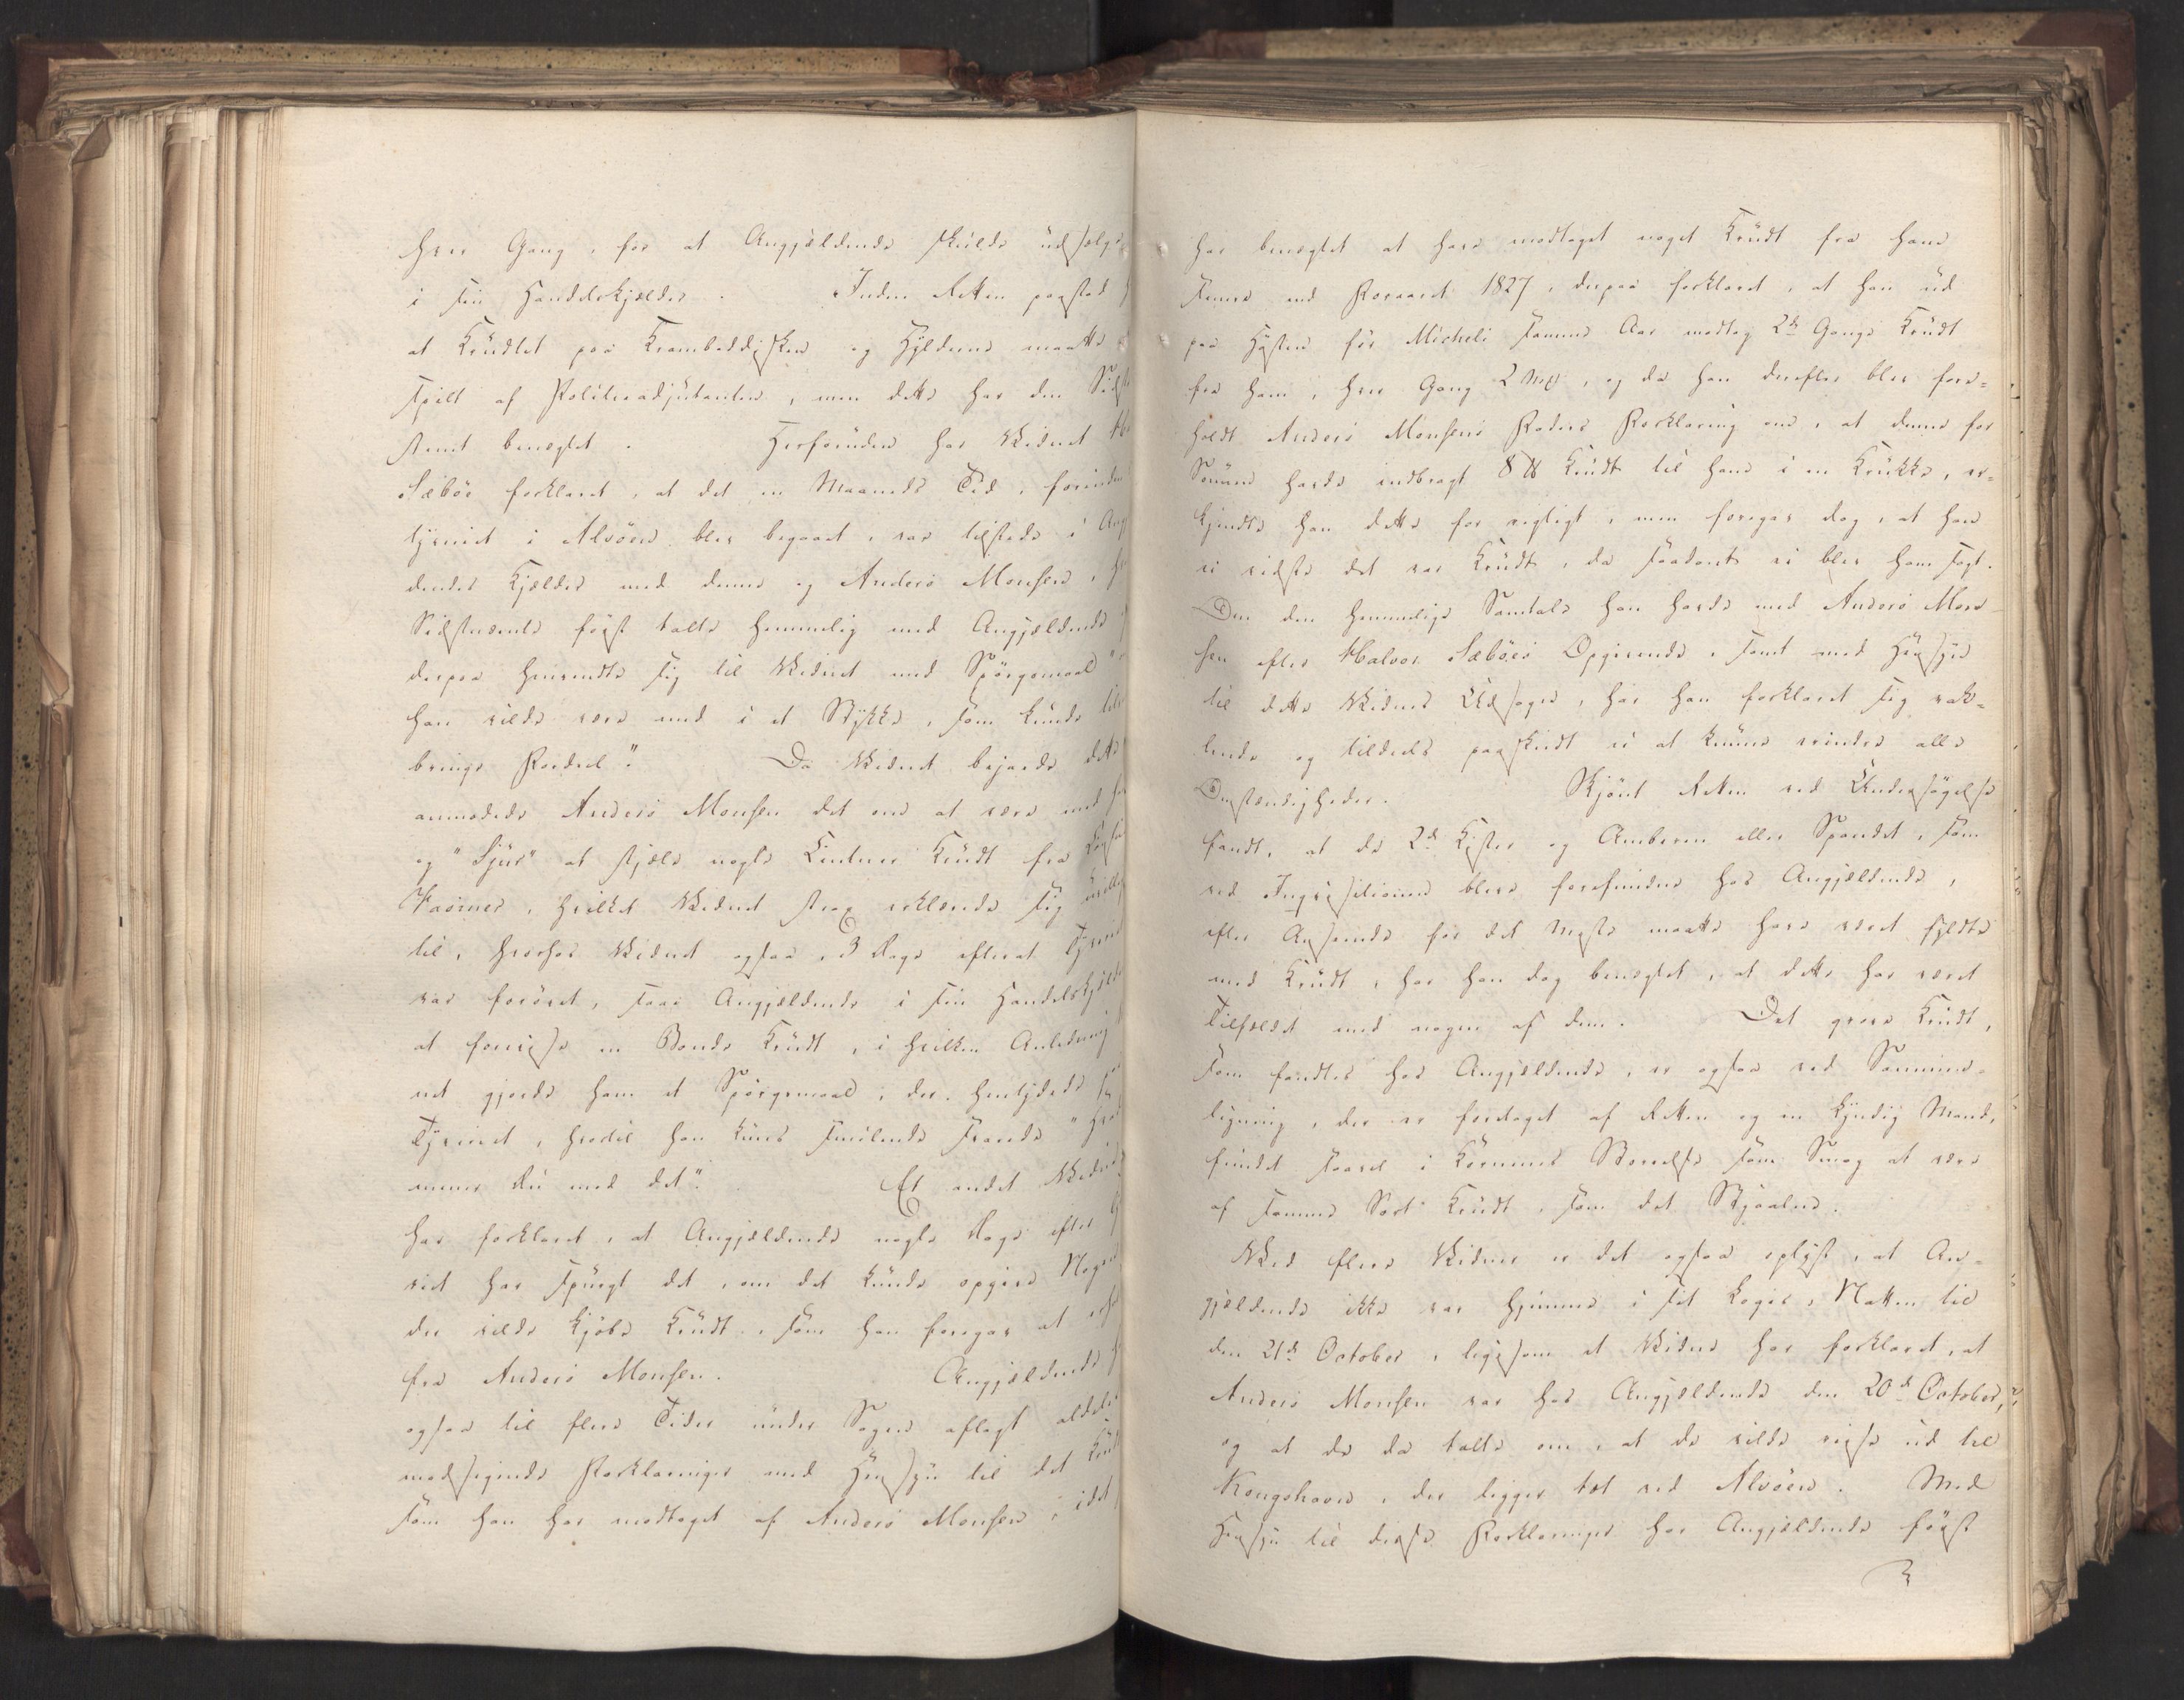 hver Gang, for at Angjældende skulde udsælge
i sin Handelskjælder. Inden Retten paastod
at Krudtet paa Krambaddisken og Hylderne maatte
spilt af Politieadjutanten, men dette har den
stemt benægtet. Herforuden har Vidnet
Sæbøe forklaret, at det en Maaneds Tid, forinden
tyveriet i Alvøen blev begaaet, var tilstede i
dendes Kjælder med denne og Anders Monsen,
Sidstnævnte først talte hemmelig med Angjældende
derpaa henvendte sig til Vidnet med Spørgsmaal
han vilde være med i et Stykke, som kunde
bringe Fordeel". Da Vidnet bejaede dette
anmodede Anders Monsen det om at være med
og "Sjur" at stjæle nogle Centner Krudt fra
Faonnes, hvilket Vidnet strax erklærede sig
til, hvorhos Vidnet ogsaa, 3 Dage efterat Tyveriet
var forøvet, saae Angjældende i sin Handelskjælder
at forevise en Bonde Krudt, i hvilken Anledning
net gjorde ham et Spørgsmaal, der hentydede
Tyveriet, hvortil han kuns smilende svarede
mener Du med det". Et andet Vidne
har forklaret, at Angjældende nogle Dage efter
riet har spurgt det, om det kunde opgive Nogen
der vilde kjøbe Krudt, som han foregav at
fra Anders Monsen. Angjældende
ogsaa til flere Tider under Sagen aflagt aldeles
modsigende Forklaringer med Hensyn til det Krudt
som han har modtaget af Anders Monsen, idet
har benægtet at have modtaget noget Krudt fra ham
senere end Foraaret 1827, derpaa forklaret, at han ud
paa Høsten før Micheli samme Aar modtog 2de Gange Krudt
fra ham, hver Gang 2 , og da han derefter blev fore-
holdt Anders Monsens Faders Forklaring om, at denne for
Sønnen havde indbragt 8 ℔ Krudt til ham i en Krukke, er-
kjendte han dette for rigtigt, men foregav dog, at han
ei vidste det var Krudt, da saadant ei blev ham sagt.
Om den hemmelige Samtale han havde med Anders Mon-
sen efter Halvor Sæbøes Opgivende, samt med Hensyn
til dette Vidnes Udsagn, har han forklaret sig vak-
lende og tildeels paaskudt ei at kunne erindre alle
Omstændigheder. Skjønt Retten ved Undersøgelse
fandt, at de 2de Kister og Amberen eller Spandet, som
ved Inqvisitionen bleve forefundne hos Angjældende,
efter Anseende for det Meste maatte have været fyldte
med Krudt, har han dog benægtet, at dette har været
Tilfældet med nogen af dem. Det grove Krudt,
som fandtes hos Angjældende, er ogsaa ved Sammen-
ligning, der er foretaget af Retten og en kyndig Mand,
fundet saavel i Kornenes Størrelse som Smag at være
af samme Sort Krudt, som det Stjaalne.
Ved flere Vidner er det ogsaa oplyst, at An-
gjældende ikke var hjemme i sit Logis, Natten til
den 21de October, ligesom et Vidne har forklaret, at
Anders Monsen var hos Angjældende den 20de October,
og at de da talte om, at de vilde reise ud til
Kongshavn, der ligger tæt ved Alvøen. Med
Hensyn til disse Forklaringer har Angjældende først